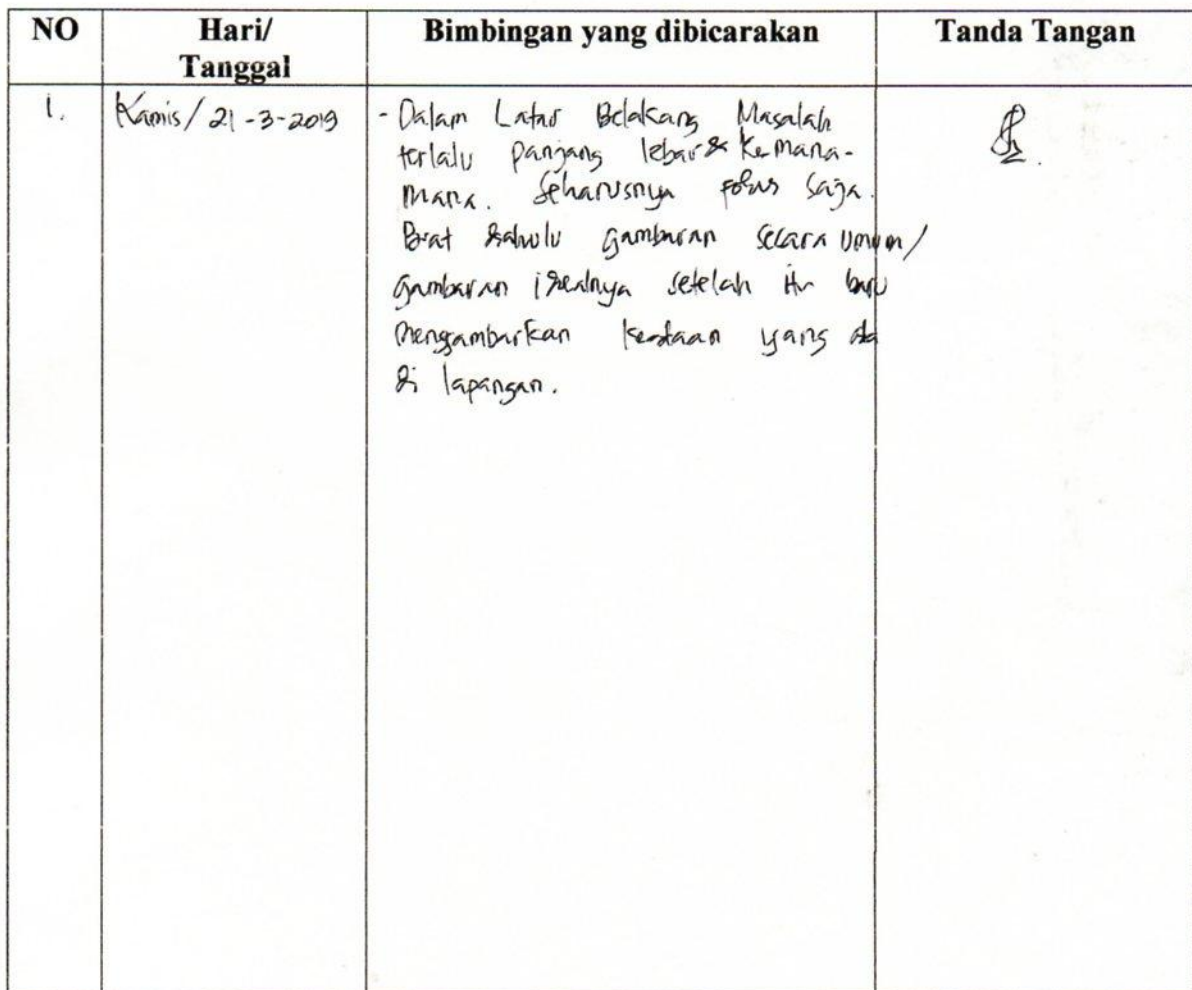 NO Hari/ Bimbingan yang dibicarakan Tanda Tangan
Tanggal
1. Kamis/ 21-3-2019 - Dalam Latar Belakang Masalah
terlalu panjang lebar & Kemana-
mana. Seharusnya fokus saja.
Buat dahulu gambaran secara umum/
gambaran idealnya setelah itu baru
mengambarkan keadaan yang ada
di lapangan.